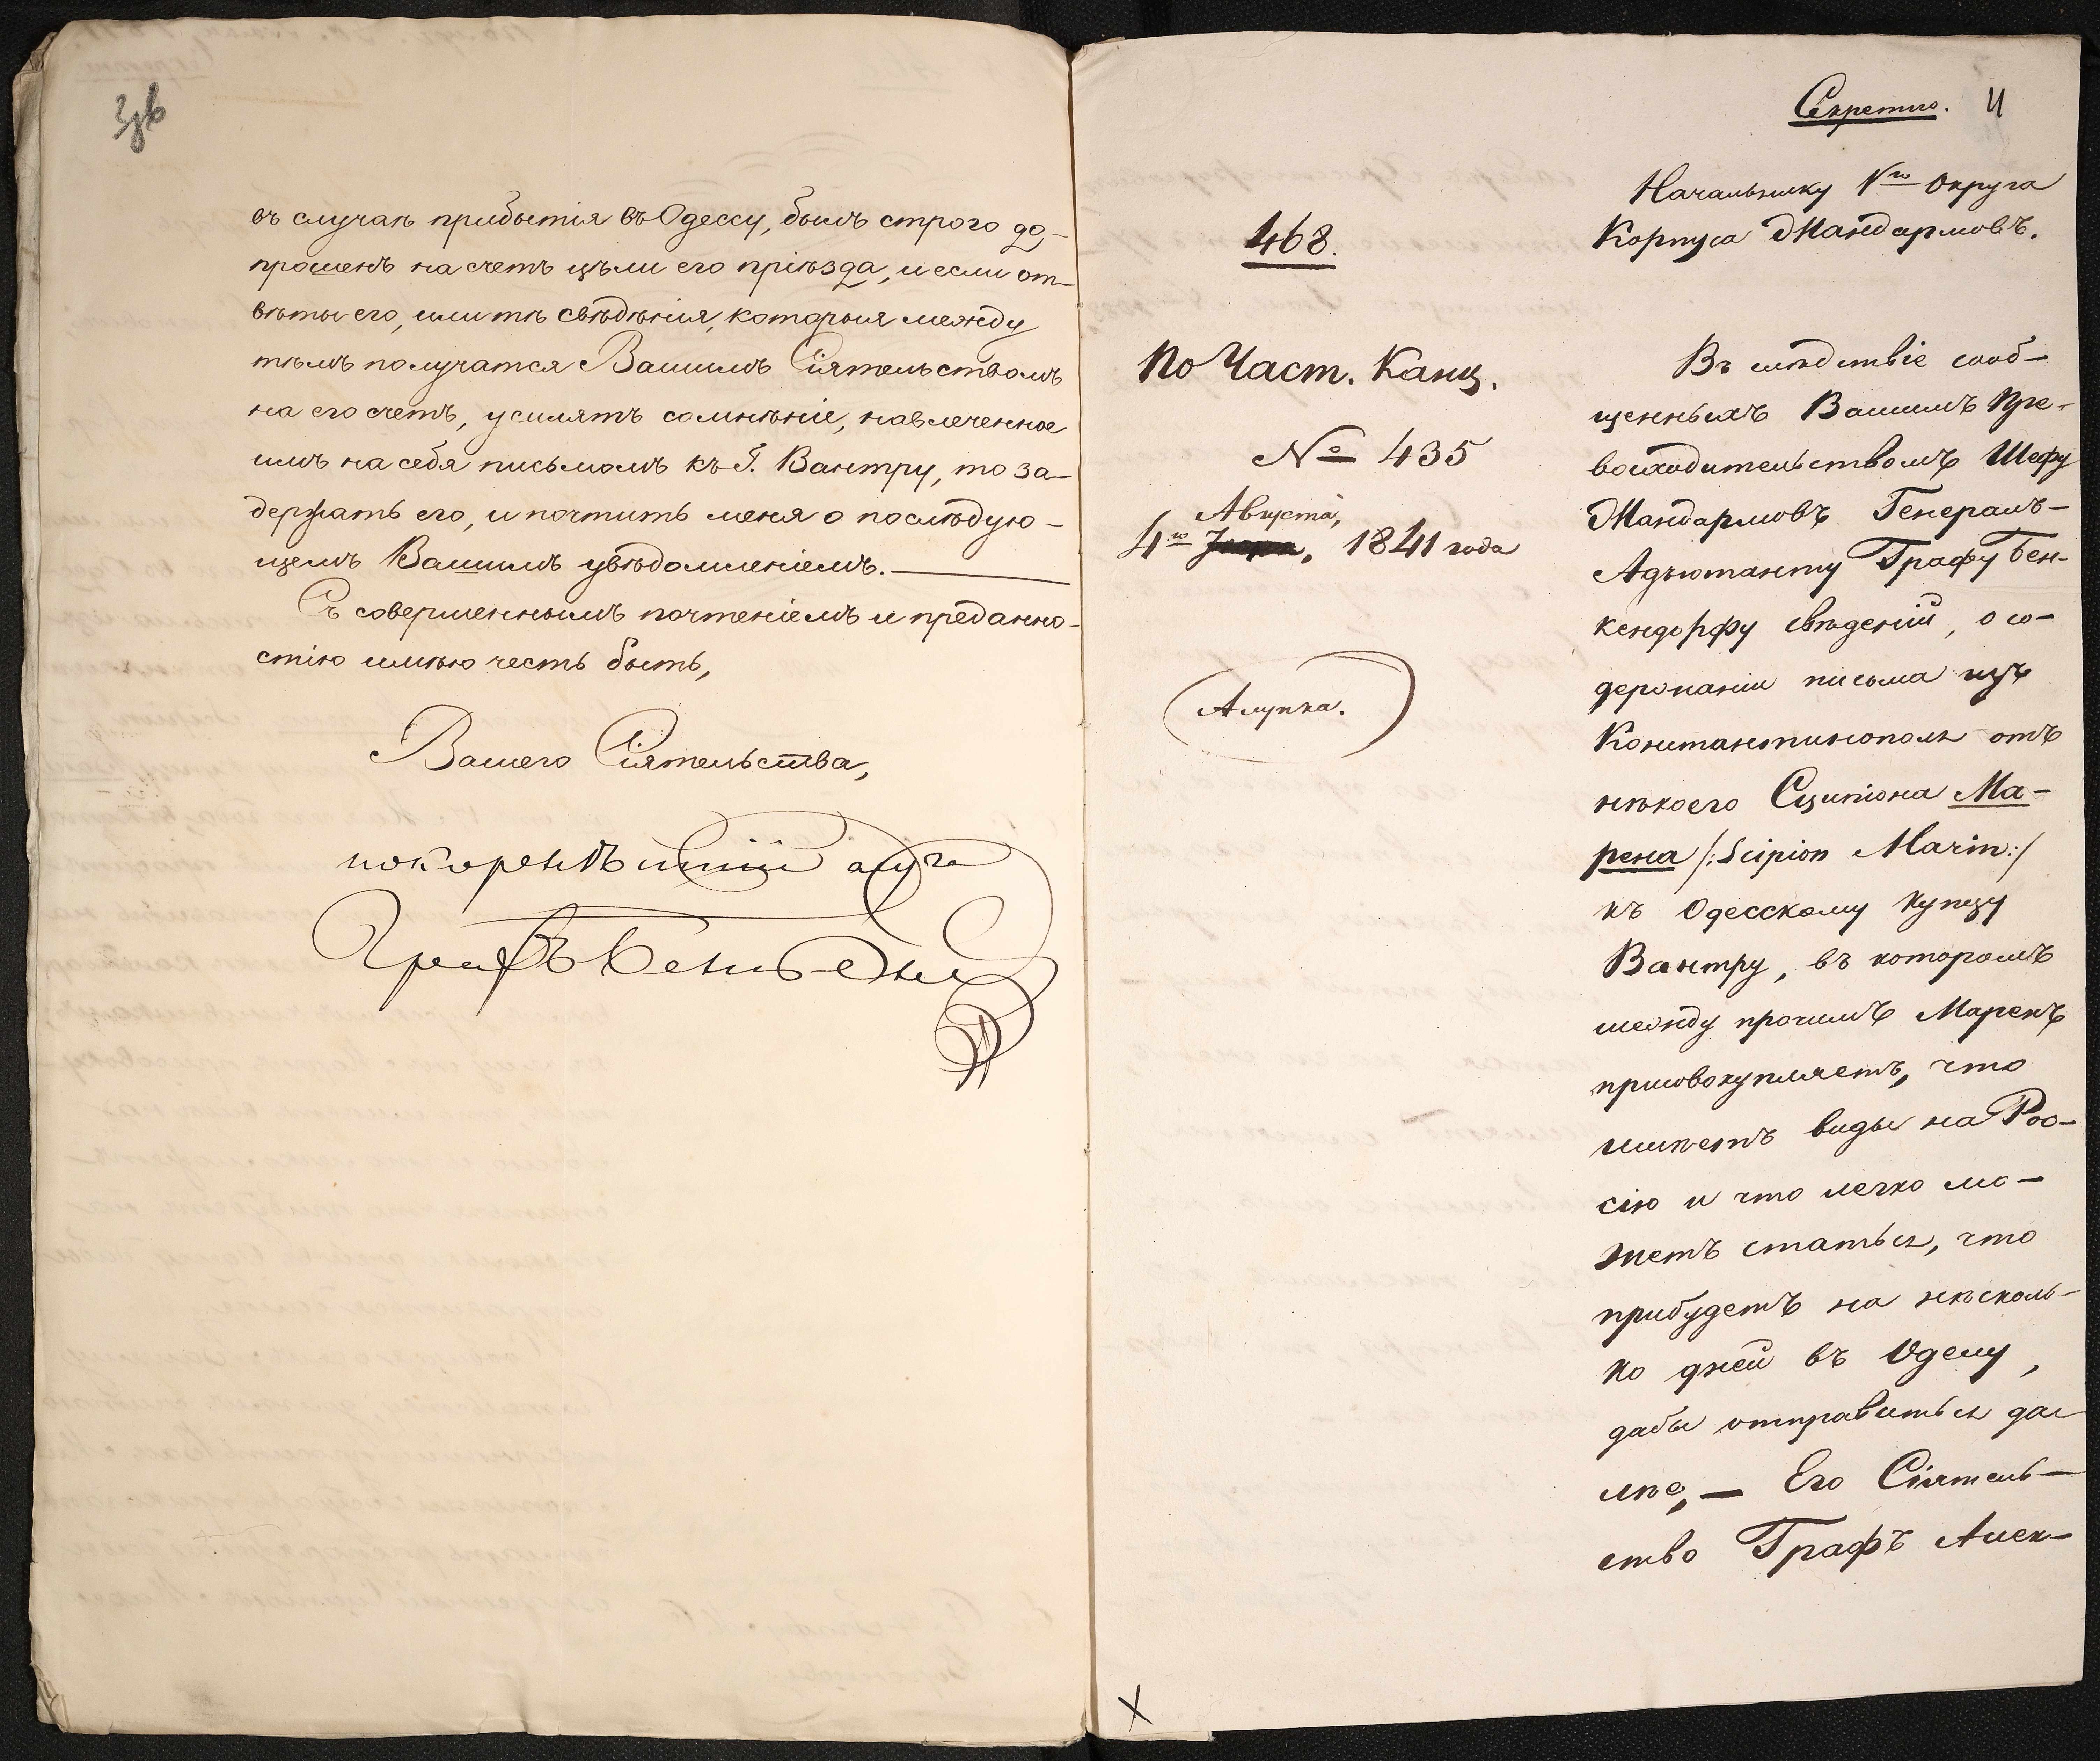 3об
въ случаѣ прибытія въ Одессу, былъ строго до-
прошенъ на счетъ цѣли его пріѣзда, и если от-
вѣты его, или тѣ свѣдѣнія, которыя между
тѣмъ получатся Вашимъ Сіятельствомъ
на его счетъ, усилятъ сомнѣніе, навлеченное
имъ на себя письмомъ къ Г. Вантру, то за-
держать его, и почтить меня о послѣдую-
щемъ Вашимъ увѣдомленіемъ.
Съ совершеннымъ почтеніемъ и преданно-
стію имѣю честь быть,
Вашего Сіятельства,
покорнѣйшій слуга
Графъ Бенкендорфъ
Секретно. 4
Начальнику Vго Округа
Корпуса Жандармовъ.
468.
По Част. Канц.
№ 435
Августа,
4го 1841 года
Алупка.
Въ слѣдствіе сооб-
щенныхъ Вашимъ Пре-
восходительствомъ Шефу
Жандармовъ Генералъ-
Адъютанту Графу Бен-
кендорфу свѣдений, о со-
держании письма изъ
Константинополя отъ
нѣкоего Сципіона Ма-
рена /:Scipion Marin:/
къ Одесскому купцу
Вантру, въ которомъ
между прочимъ Маренъ
присовокупляетъ, что
имѣетъ виды на Рос-
сію и что легко мо-
жетъ статься, что
прибудетъ на нѣсколь-
ко дней въ Одессу,
дабы отправиться да-
лѣе, — Его Сіятель-
ство Графъ Алек-
X